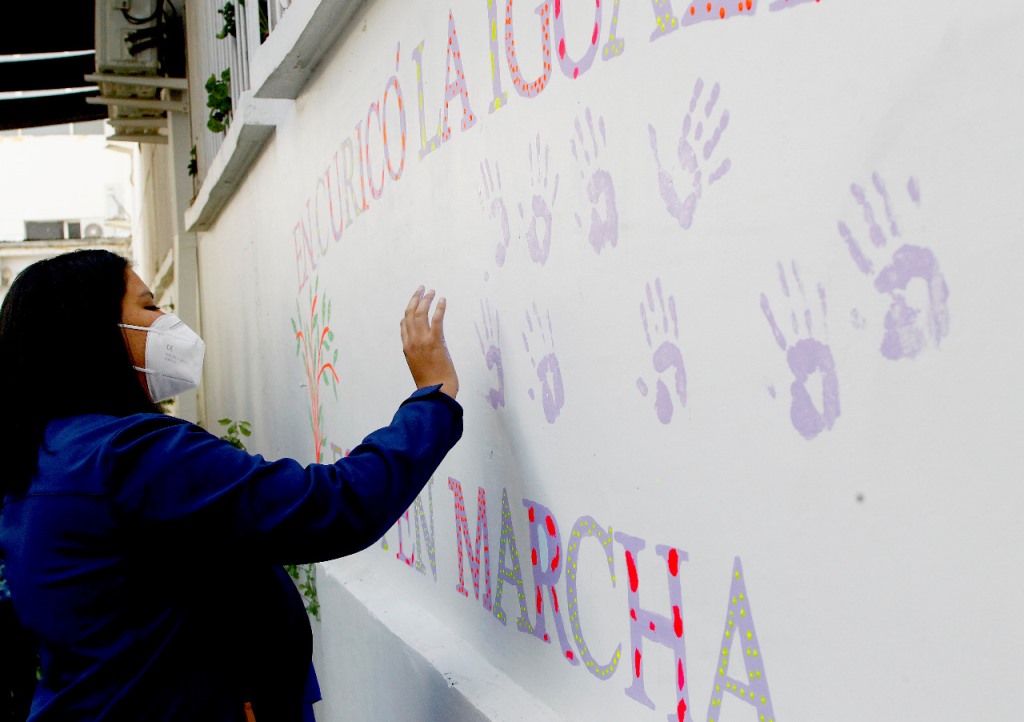 EN CURICÓ LA IGUAL
EN MARCHA